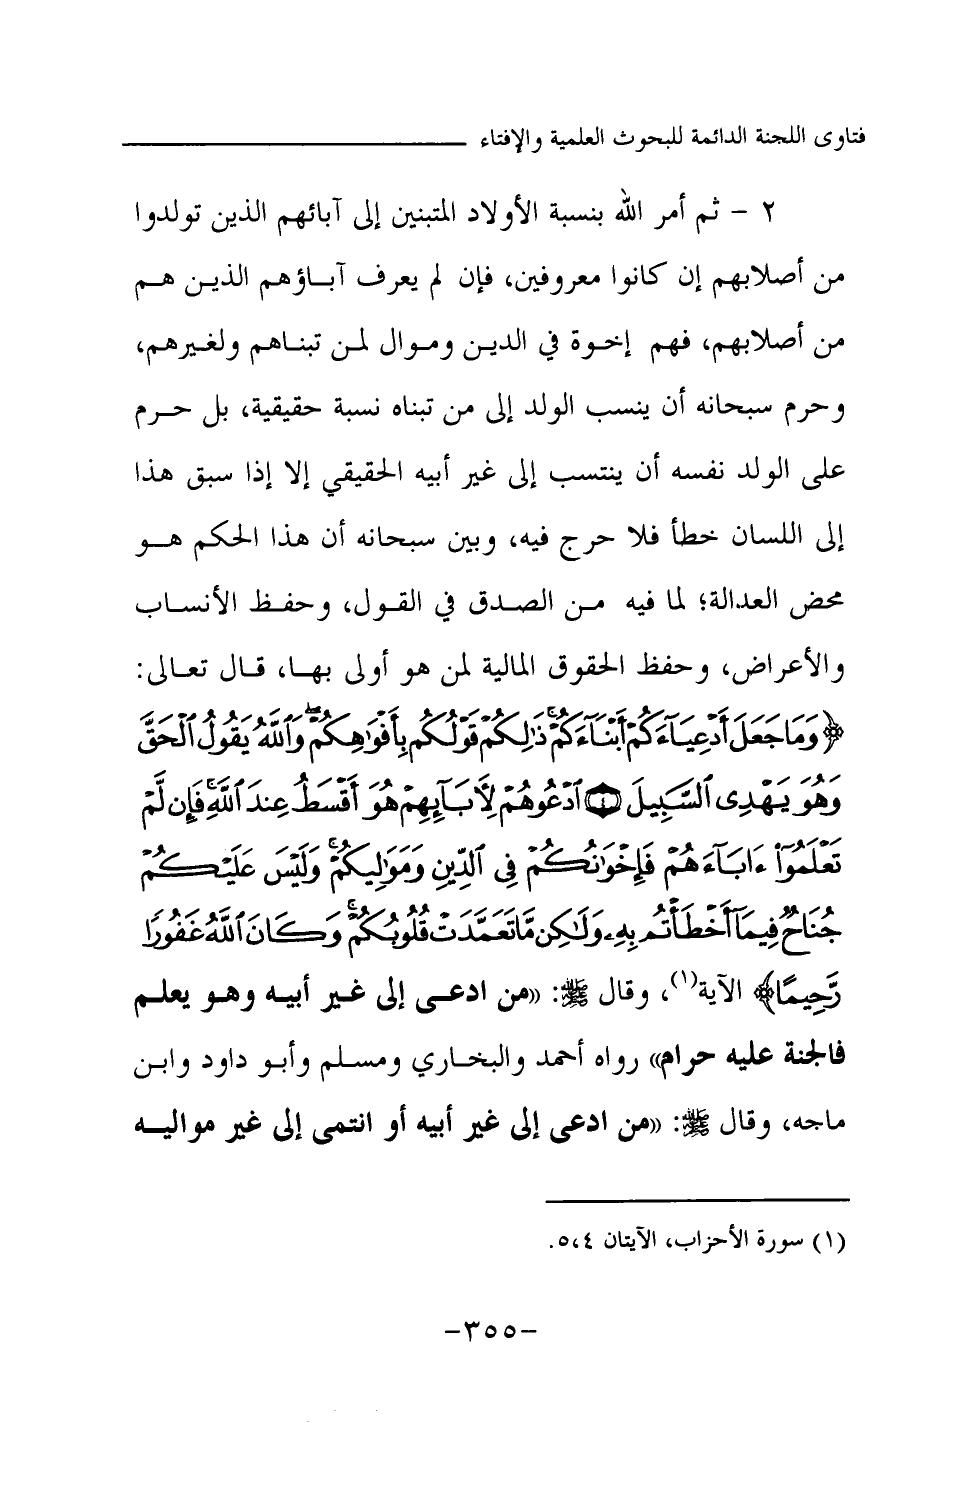 فتاوى اللجنة الدائمة للبحوث العلمية والإفتاء
٢ - ثم أمر الله بنسبة الأولاد المتبنين إلى آبائهم الذين تولدوا
من أصلابهم إن كانوا معروفين، فإن لم يعرف آباؤهم الذين هم
من أصلابهم، فهم إخوة في الدين وموال لمن تبناهم ولغيرهم،
وحرم سبحانه أن ينسب الولد إلى من تبناه نسبة حقيقية، بل حرم
على الولد نفسه أن ينتسب إلى غير أبيه الحقيقي إلا إذا سبق هذا
إلى اللسان خطأ فلا حرج فيه، وبين سبحانه أن هذا الحكم هو
محض العدالة؛ لما فيه من الصدق في القول، وحفظ الأنساب
والأعراض، وحفظ الحقوق المالية لمن هو أولى بها، قال تعالى:
﴿وَمَا جَعَلَ أَدْعِيَآءَكُمْ أَبْنَآءَكُمْ ۚ ذَٰلِكُمْ قَوْلُكُم بِأَفْوَٰهِكُمْ ۖ وَٱللَّهُ يَقُولُ ٱلْحَقَّ
وَهُوَ يَهْدِى ٱلسَّبِيلَ ۝٤ ٱدْعُوهُمْ لِأَبَآئِهِمْ هُوَ أَقْسَطُ عِندَ ٱللَّهِ ۚ فَإِن لَّمْ
تَعْلَمُوٓا۟ ءَابَآءَهُمْ فَإِخْوَٰنُكُمْ فِى ٱلدِّينِ وَمَوَٰلِيكُمْ ۚ وَلَيْسَ عَلَيْكُمْ
جُنَاحٌ فِيمَآ أَخْطَأْتُم بِهِۦ وَلَٰكِن مَّا تَعَمَّدَتْ قُلُوبُكُمْ ۚ وَكَانَ ٱللَّهُ غَفُورًا
رَّحِيمًا﴾ الآية(١)، وقال ﷺ: «من ادعى إلى غير أبيه وهو يعلم
فالجنة عليه حرام» رواه أحمد والبخاري ومسلم وأبو داود وابن
ماجه، وقال ﷺ: «من ادعى إلى غير أبيه أو انتمى إلى غير مواليه
(١) سورة الأحزاب، الآيتان ٤،٥.
-٣٥٥-